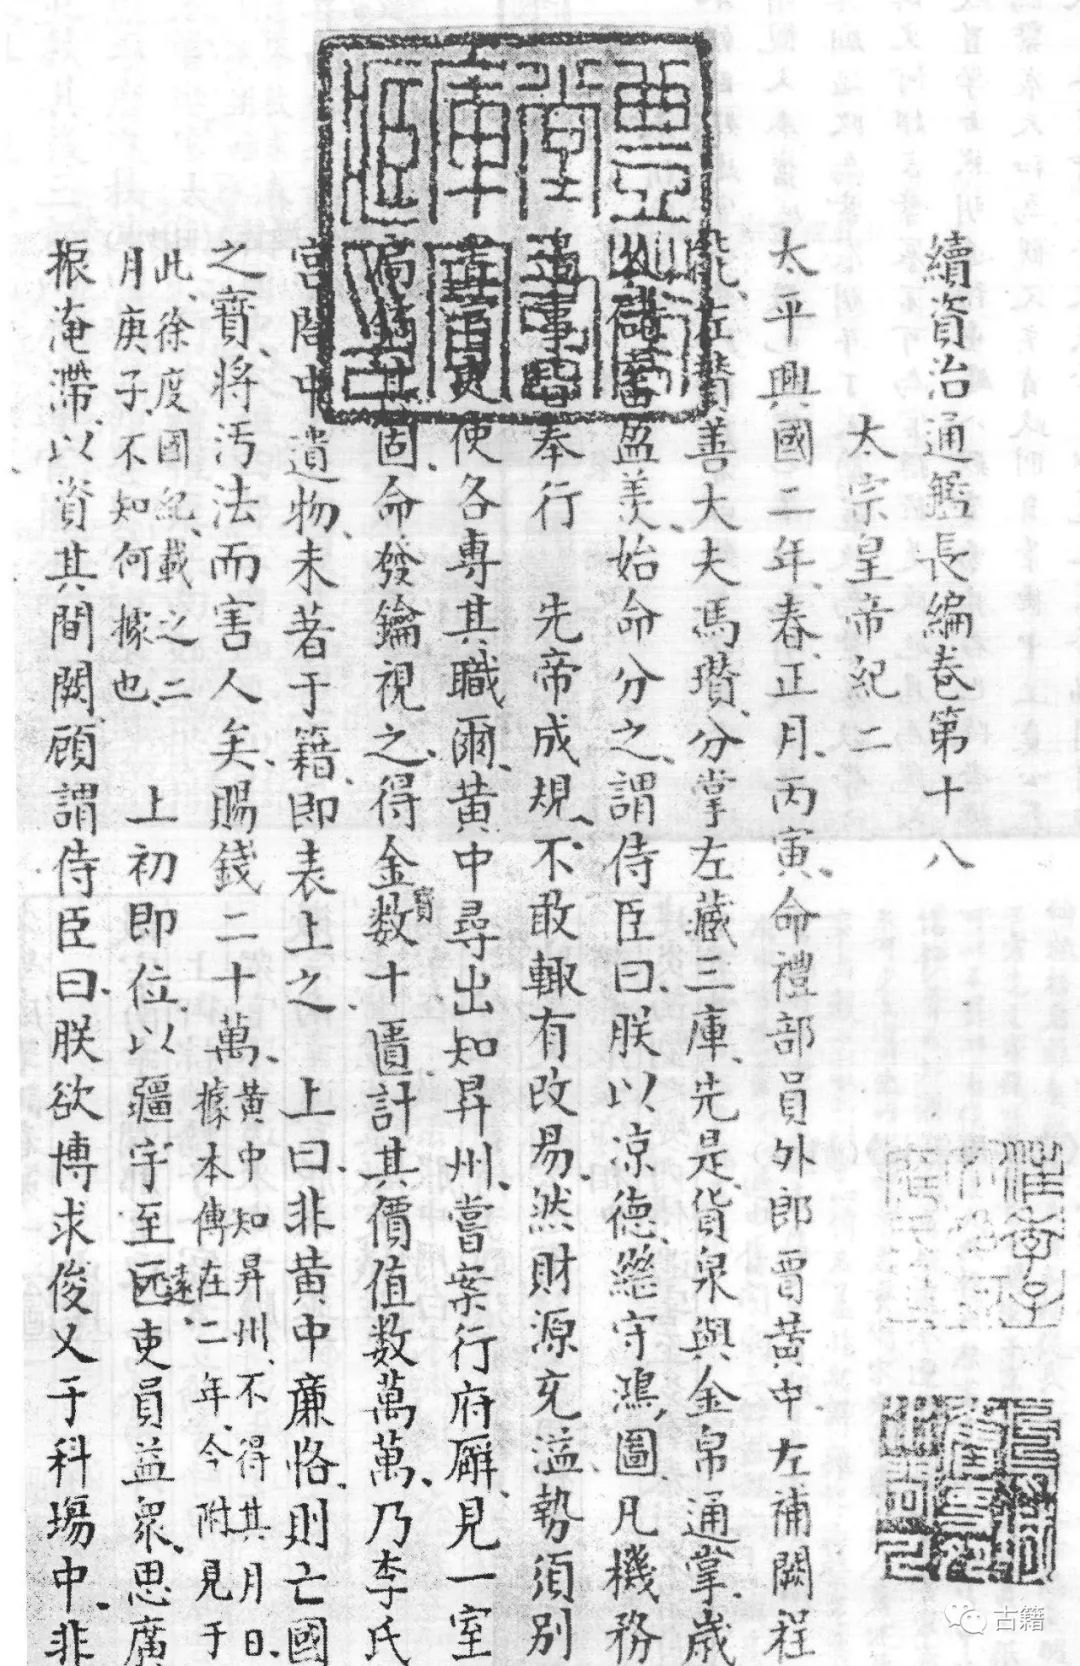 續資治通鑑長編卷第十八
太宗皇帝紀二
太平興國二年春正月丙寅命禮部員外郎賈黃中左補闕程
能左贊善大夫馮瓚分掌左藏三庫先是貨泉與金帛通掌歲
儲蓄盈羡始命分之謂侍臣曰朕以凉德繼守鴻圖凡機務
事皆奉行 先帝成規不敢輙有改易然財源充溢勢須別
吏使各專其職爾黃中尋出知昇州嘗案行府廨見一室
扃鑰甚固命發鑰視之得金寳数十匱計其價值数萬萬乃李氏
宮閣中遺物未著于籍即表上之 上曰非黃中廉恪則亡國
之寳將污法而害人矣賜錢二十萬
黃中知昇州不得其月日
據本傳在二年今附見于
此徐度國紀載之二
月庚子不知何據也
上初即位以疆宇至遠吏員益衆思廣
振淹滯以資其間闕顧謂侍臣曰朕欲博求俊乂于科塲中非
古籍